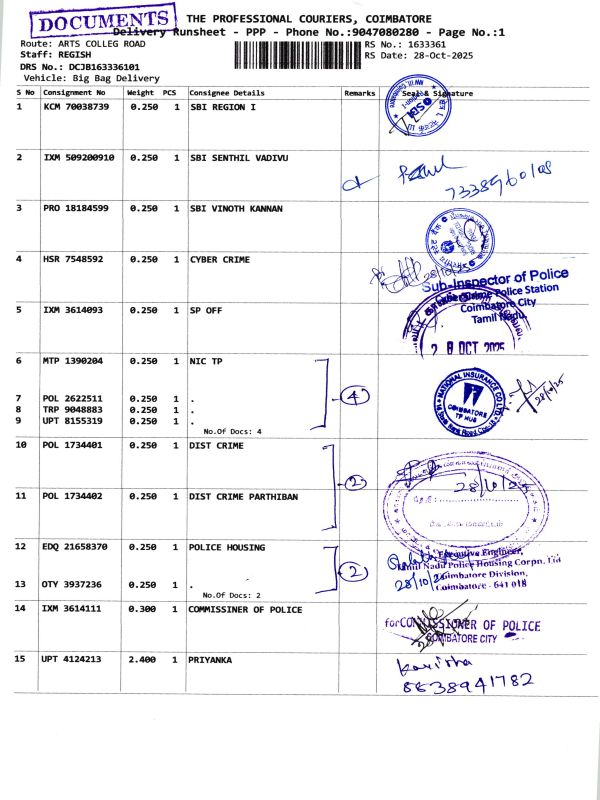 DOCUMENTS
THE PROFESSIONAL COURIERS, COIMBATORE
Delivery Runsheet - PPP - Phone No.:9047080280 - Page No.:1
Route: ARTS COLLEG ROAD
RS No.: 1633361
Staff: REGISH
RS Date: 28-Oct-2025
DRS No.: DCJB163336101
Vehicle: Big Bag Delivery
S No Consignment No Weight PCS Consignee Details Remarks Seal & Signature
1 KCM 70038739 0.250 1 SBI REGION I
2 IXM 509200910 0.250 1 SBI SENTHIL VADIVU
3 PRO 18184599 0.250 1 SBI VINOTH KANNAN
4 HSR 7548592 0.250 1 CYBER CRIME
28/10/25
Sub-Inspector of Police
Cyber Crime Police Station
Coimbatore City
Tamil Nadu.
5 IXM 3614093 0.250 1 SP OFF
2 8 OCT 2025
6 MTP 1390204 0.250 1 NIC TP
NATIONAL INSURANCE CO. LTD.
COIMBATORE
TP HUB
28/10/25
4
7 POL 2622511 0.250 1 .
8 TRP 9048883 0.250 1 .
9 UPT 8155319 0.250 1 .
No.Of Docs: 4
10 POL 1734401 0.250 1 DIST CRIME
2
28/10/25
11 POL 1734402 0.250 1 DIST CRIME PARTHIBAN
12 EDQ 21658370 0.250 1 POLICE HOUSING
2
Executive Engineer,
Tamil Nadu Police Housing Corpn. Ltd
Coimbatore Division,
Coimbatore - 641 018
28/10/2
13 OTY 3937236 0.250 1 .
No.Of Docs: 2
14 IXM 3614111 0.300 1 COMMISSINER OF POLICE
for COMMISSIONER OF POLICE
COIMBATORE CITY
15 UPT 4124213 2.400 1 PRIYANKA
8638941782